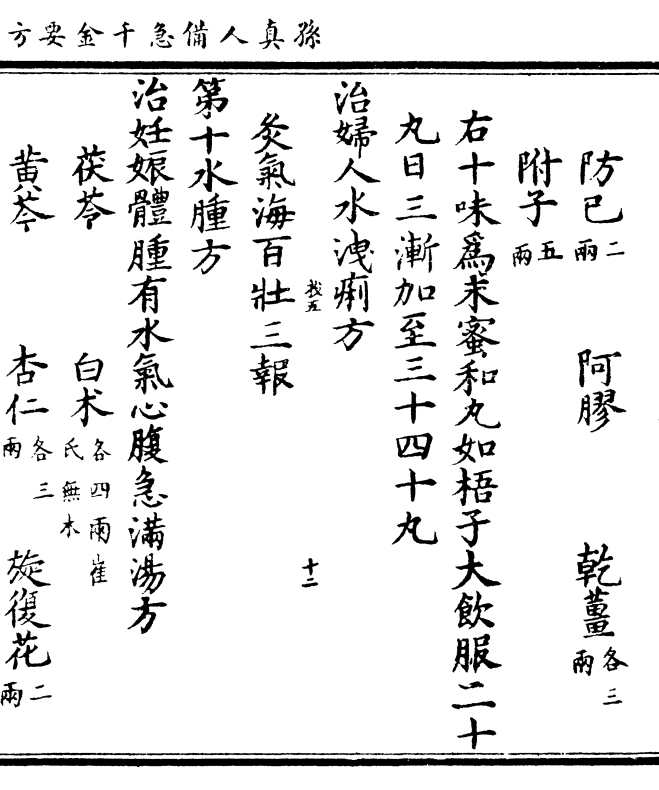 孫真人備急千金要方
防已二兩 阿膠 乾薑各三兩
附子五兩
右十味爲末蜜和丸如梧子大飲服二十
丸日三漸加至三十四十丸
治婦人水洩痢方
灸氣海百壯三報
第十水腫方
治妊娠體腫有水氣心腹急滿湯方
茯苓 白朮各四兩崔氏無朮
黃芩 杏仁各三兩 旋復花二兩
十二